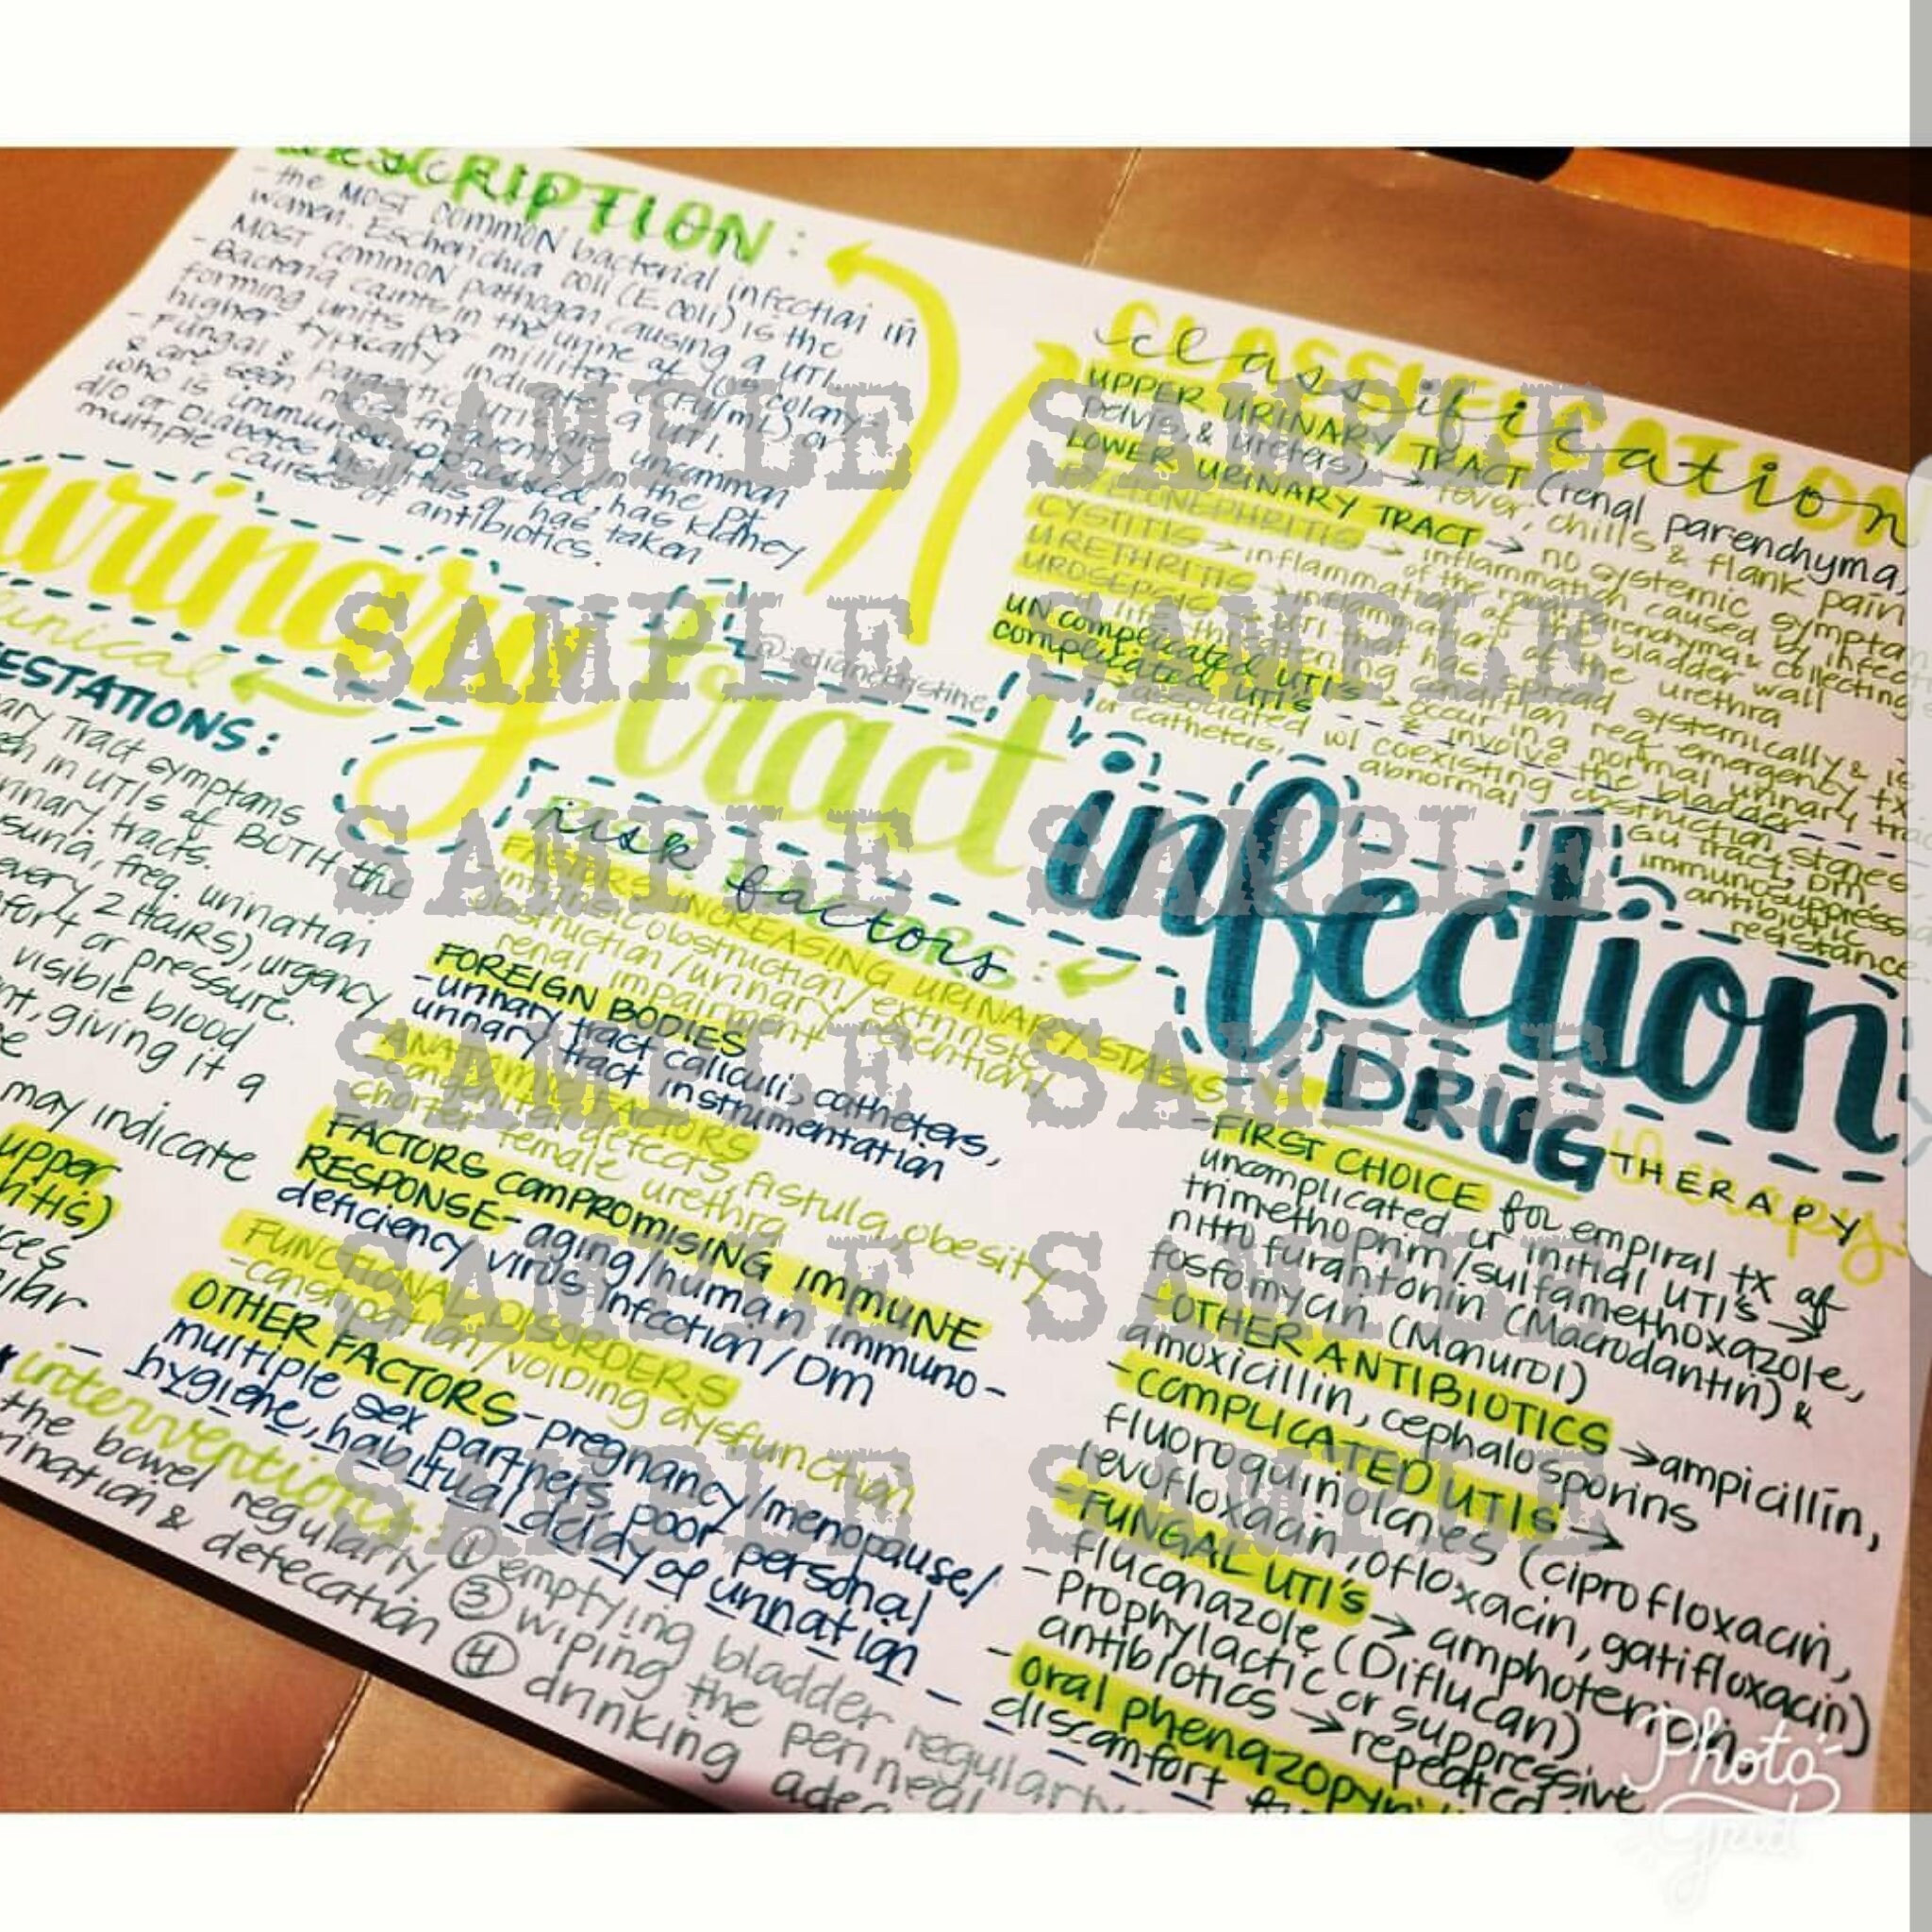 DESCRIPTION:
- the MOST common bacterial infection in
women. Escherichia coli (E. coli) is the
MOST common pathogen causing a UTI.
- Bacteria counts in the urine of 10⁵ colony-
forming units per milliliter (CFU/mL) or
higher typically indicate a UTI.
- Fungal & parasitic UTI's are uncommon
& are seen most frequently in the pt.
who is immunosuppressed, has kidney
d/o or Diabetes Mellitus or has taken
multiple courses of antibiotics.
classification
UPPER URINARY TRACT (renal parenchyma,
pelvis, & ureters) → fever, chills & flank pain
LOWER URINARY TRACT → no systemic symptom
PYELONEPHRITIS → inflammation caused by infect
of the renal parenchyma & collecting
CYSTITIS → inflammation of the bladder wall
URETHRITIS → inflammation of the urethra
UROSEPSIS → UTI that has spread systemically & is
a life threatening condition req. emergency tx
UNcomplicated UTI's → occur in a normal urinary trac
& involve the bladder
complicated UTI's
→ associated w/ coexisting obstruction, stones
or catheters, abnormal GU tract, DM,
immunosuppress
antibiotic
resistance
urinary tract infection
@dianekristine
clinical
ESTATIONS:
ary Tract symptoms
en in UTIs of BOTH the
rinary tracts.
suria, freq. urination
every 2 HOURS), urgency
fort or pressure.
visible blood
nt, giving it a
e
may indicate
upper
ritis)
ces
ular
Risk factors:
FACTORS INCREASING URINARY STASIS
- intrinsic obstruction/extrinsic
obstruction/urinary retention/
renal impairment
FOREIGN BODIES
- urinary tract caliculi, catheters,
urinary tract instrumentation
ANATOMIC FACTORS
- congenital defects, fistula, obesity
shorter female urethra
FACTORS COMPROMISING IMMUNE
RESPONSE- aging/human immuno-
deficiency virus infection/DM
FUNCTIONAL DISORDERS
- constipation/voiding dysfunction
OTHER FACTORS-pregnancy/menopause/
multiple sex partners, poor personal
hygiene, habitual delay of urination
interventions: ① emptying bladder regularly
the bowel regularly ③ wiping the perineal
rination & defecation ④ drinking adeq
DRUG THERAPY:
-FIRST CHOICE for empiral tx of
uncomplicated or initial UTI's →
trimethoprim/sulfamethoxazole,
nitrofurantonin (Macrodantin) &
fosfomycin (Monurol)
-OTHER ANTIBIOTICS → ampicillin,
amoxicillin, cephalosporins
-COMPLICATED UTIs →
fluoroquinolones (ciprofloxacin,
levofloxacin, ofloxacin, gatifloxacin)
-FUNGAL UTI's → amphotericin,
fluconazole (Diflucan)
-Prophylactic or suppressive
antibiotics → repeated
-oral phenazopyri
discomfort
SAMPLE SAMPLE
SAMPLE SAMPLE
SAMPLE SAMPLE
SAMPLE SAMPLE
SAMPLE SAMPLE
SAMPLE SAMPLE
Photo
Grid